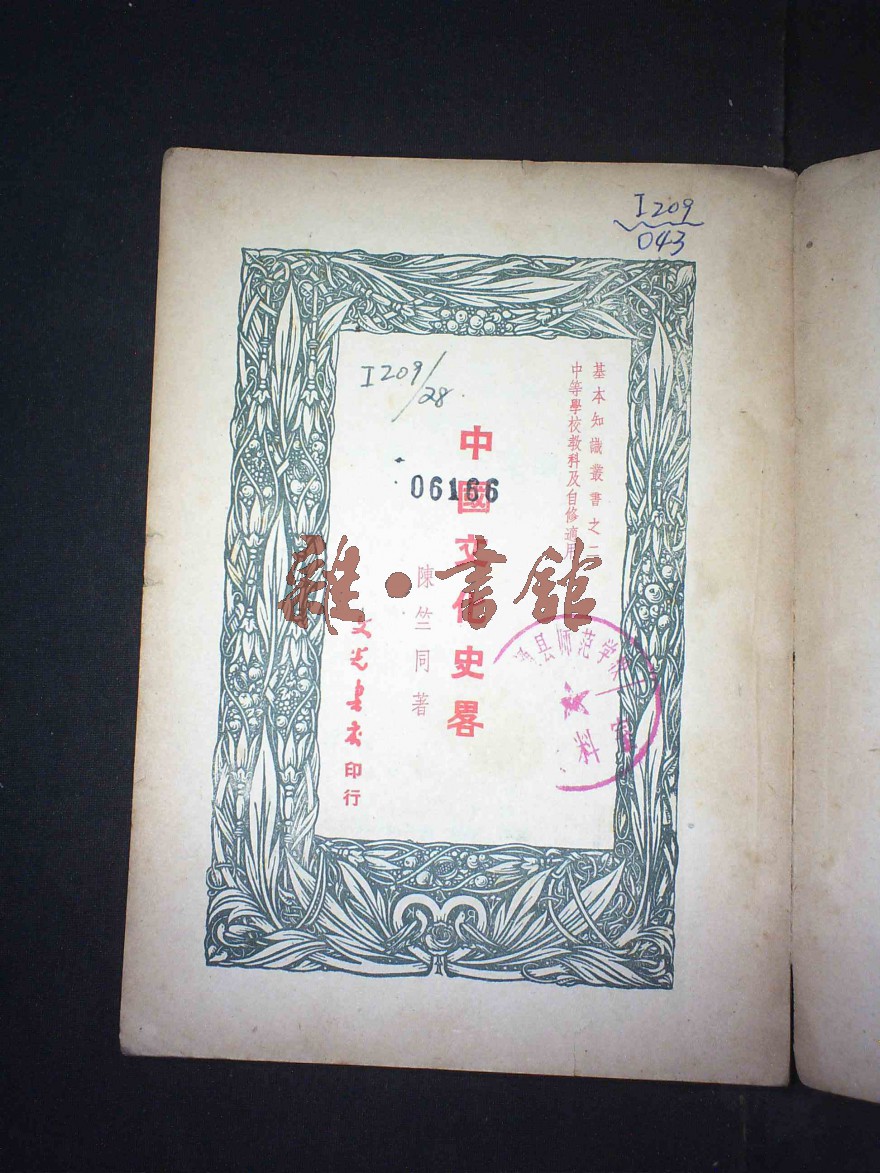 I209
043
基本知識叢書之二
中等學校教科及自修適用
I209/28
中國文化史畧
06166
陳竺同著
文光書店印行
雜·書舘
县师范学校
料室